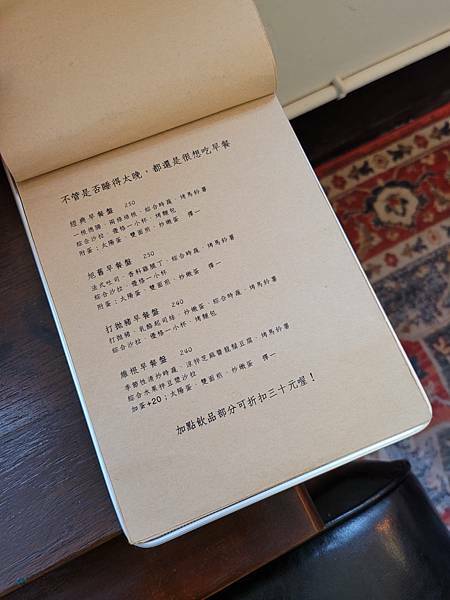 不管是否睡得太晚，都還是很想吃早餐
經典早餐盤 250
一根德腸．兩條培根．綜合時蔬．烤馬鈴薯
綜合沙拉．優格一小杯．烤麵包
附蛋；太陽蛋．雙面煎．炒嫩蛋 擇一
尬舊早餐盤 250
法式吐司．香料雞腿丁．綜合時蔬．烤馬鈴薯
綜合沙拉．優格一小杯
附蛋；太陽蛋．雙面煎．炒嫩蛋 擇一
打拋豬早餐盤 240
打拋豬．乳酪起司絲．炒嫩蛋．綜合時蔬．烤馬鈴薯
綜合沙拉．優格一小杯．烤麵包
維根早餐盤 240
季節性清炒時蔬．涼拌芝麻醬龍鬚豆腐．烤馬鈴薯
綜合水果拌豆漿沙拉
加蛋+20；太陽蛋．雙面煎．炒嫩蛋 擇一
加點飲品部分可折扣三十元喔！